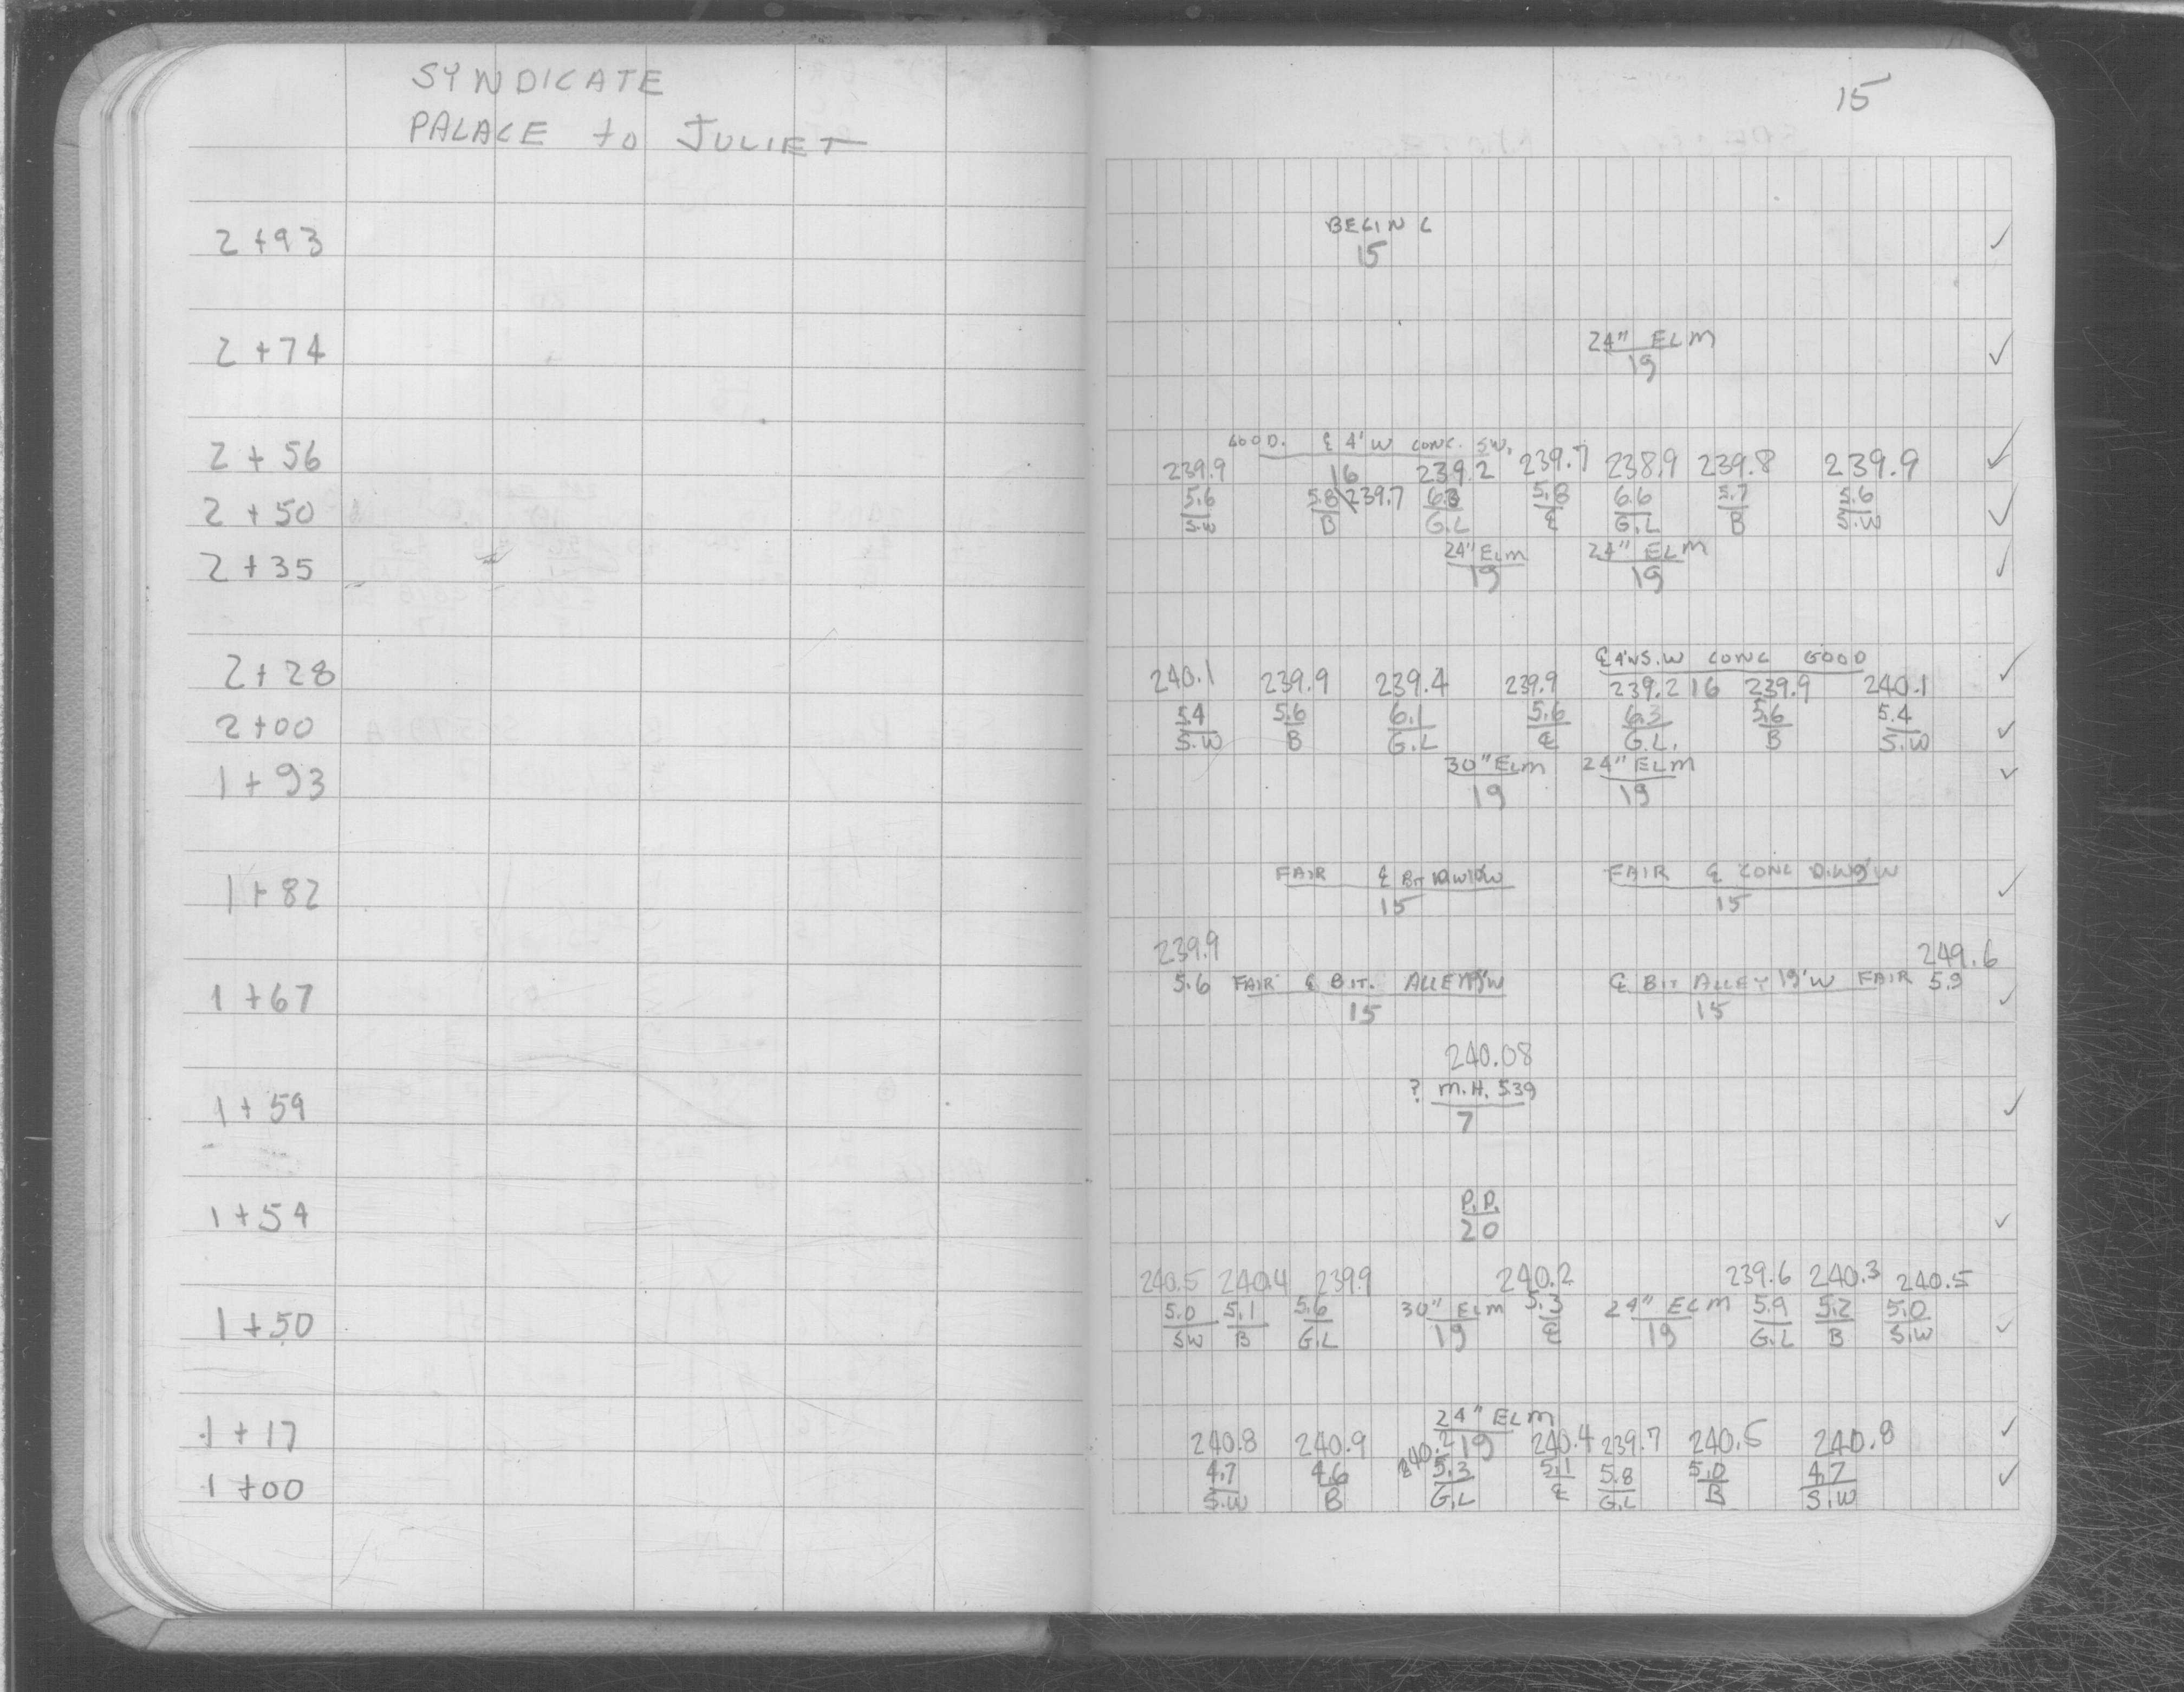 SYNDICATE
PALACE to JULIET
15
2+93 BEGIN C ✓
15
2+74 24" ELM ✓
19
GOOD. ℄ 4'W CONC. SW.
2+56 239.9 16 239.2 239.7 238.9 239.8 239.9 ✓
2+50 5.6 5.8\239.7 6.3 5.8 6.6 5.7 5.6 ✓
S.W B G.L ℄ G.L B S.W
2+35 24" ELM 24" ELM ✓
19 19
℄ 4'W S.W CONC GOOD
2+28 240.1 239.9 239.4 239.9 239.2 16 239.9 240.1 ✓
2+00 5.4 5.6 6.1 5.6 6.3 5.6 5.4 ✓
S.W B G.L ℄ G.L. B S.W
1+93 30" ELM 24" ELM ✓
19 19
1+82 FAIR ℄ BIT D.W 10'W FAIR ℄ CONC D.W 9'W ✓
15 15
239.9 249.6
1+67 5.6 FAIR ℄ BIT. ALLEY 19'W ℄ BIT ALLEY 19'W FAIR 5.9 ✓
15 15
240.08
1+59 ? M.H. 5.39 ✓
7
1+54 P.P. ✓
20
240.5 240.4 239.9 240.2 239.6 240.3 240.5
1+50 5.0 5.1 5.6 30" ELM 5.3 24" ELM 5.9 5.2 5.0 ✓
SW B G.L 19 ℄ 19 G.L B S.W
24" ELM
1+17 240.8 240.9 240.2 19 240.4 239.7 240.5 240.8 ✓
1+00 4.7 4.6 5.3 5.1 5.8 5.0 4.7 ✓
S.W B G.L ℄ G.L B S.W